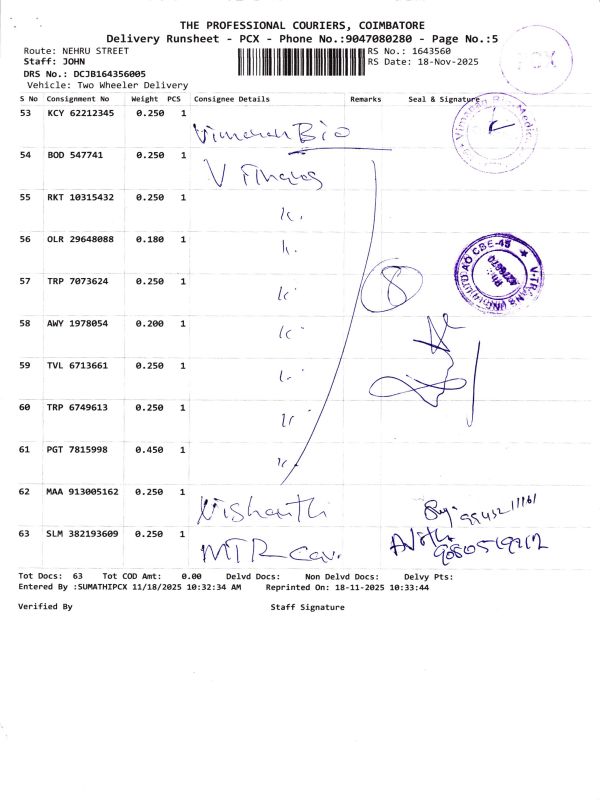 THE PROFESSIONAL COURIERS, COIMBATORE
Delivery Runsheet - PCX - Phone No.:9047080280 - Page No.:5
Route: NEHRU STREET
RS No.: 1643560
Staff: JOHN
RS Date: 18-Nov-2025
DRS No.: DCJB164356005
Vehicle: Two Wheeler Delivery
PCX
S No Consignment No Weight PCS Consignee Details Remarks Seal & Signature
53 KCY 62212345 0.250 1 Vimaran Bio
54 BOD 547741 0.250 1
55 RKT 10315432 0.250 1
56 OLR 29648088 0.180 1
57 TRP 7073624 0.250 1
8
58 AWY 1978054 0.200 1
59 TVL 6713661 0.250 1
60 TRP 6749613 0.250 1
61 PGT 7815998 0.450 1
62 MAA 913005162 0.250 1 Nishanth
63 SLM 382193609 0.250 1 MTR
Tot Docs: 63 Tot COD Amt: 0.00 Delvd Docs: Non Delvd Docs: Delvy Pts:
Entered By :SUMATHIPCX 11/18/2025 10:32:34 AM Reprinted On: 18-11-2025 10:33:44
Verified By Staff Signature